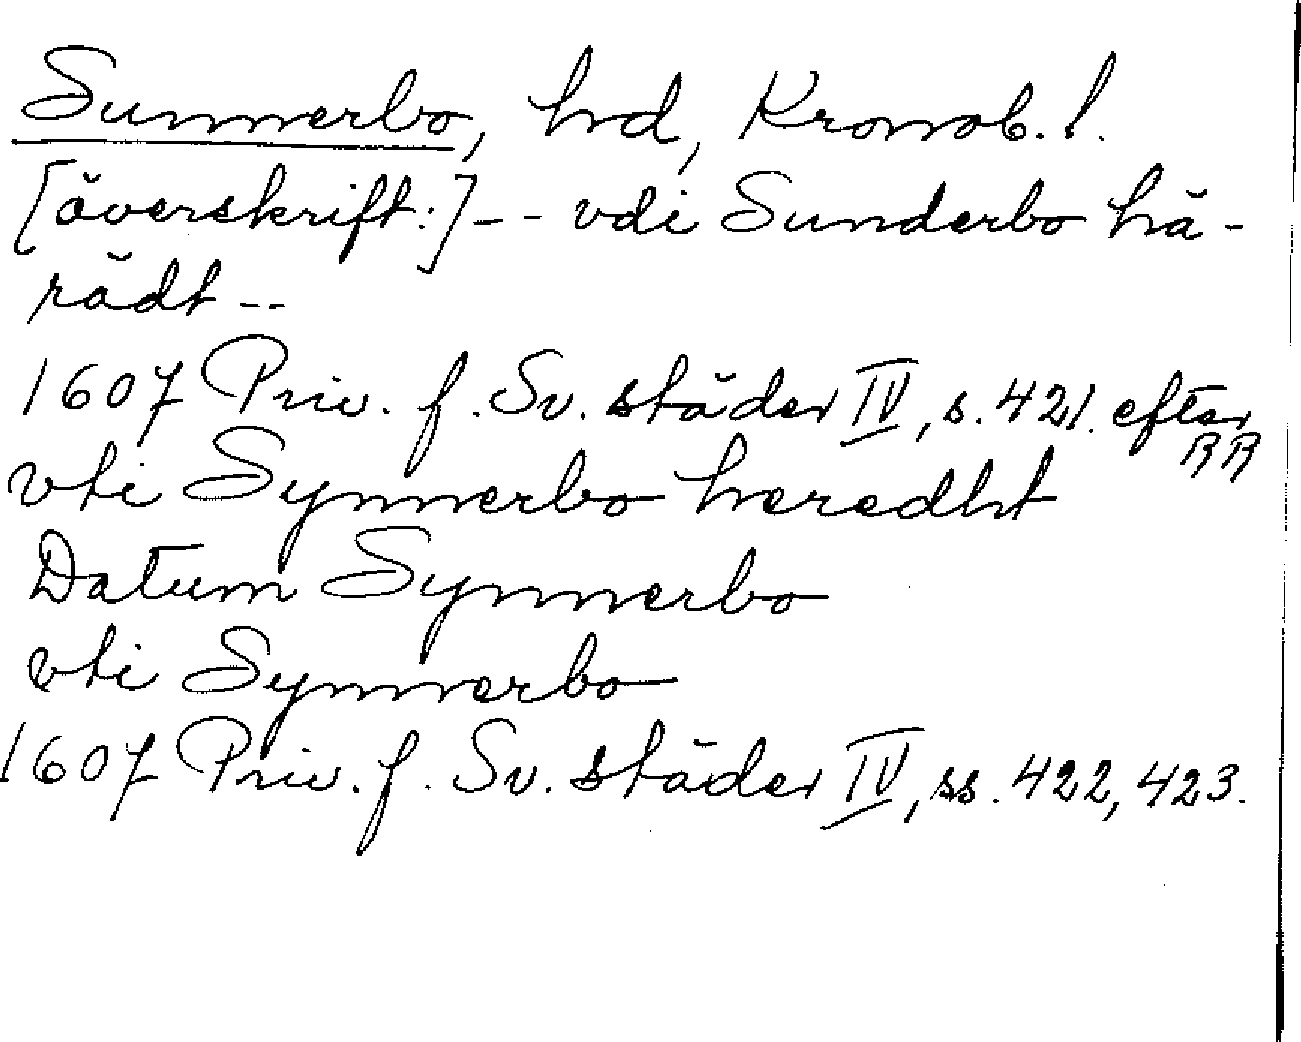 Sunnerbo, hd, Kronob. l.
[överskrift:] - - vdi Sunderbo hä-
rädt --
1607 Priv. f. Sv. städer IV, s. 421. efter
RR
vti Synnerbo heredht
Datum Synnerbo
vti Synnerbo
1607 Priv. f. Sv. städer IV, ss. 422, 423.